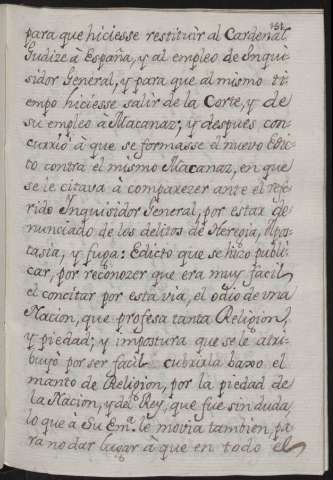 para que hiciesse restituir al Cardenal
Judize à España, y al empleo de Inqui
sidor General, y para que al mismo ti
empo hiciesse salir de la Corte, y de
su empleo à Macanaz; y despues con
currió à que se formasse el nuevo Edic
to contra el mismo Macanaz, en que
se le citava à comparezer ante el refe
rido Inquisidor General, por estar de
nunciado de los delitos de Heregia, Apos
tasia, y fuga: Edicto que se hizo publi
car, por reconozer que era muy facil
el concitar por esta via, el odio de vna
Nacion, que profesa tanta Religion,
y piedad; y impostura que se le atri
buyò por ser facil cubrirla baxo el
manto de Religion, por la piedad de
la Nacion, y del Rey, que fue sin duda
lo que à Su Em.ª le movia tambien, pa
ra no dar lugar à que en todo el